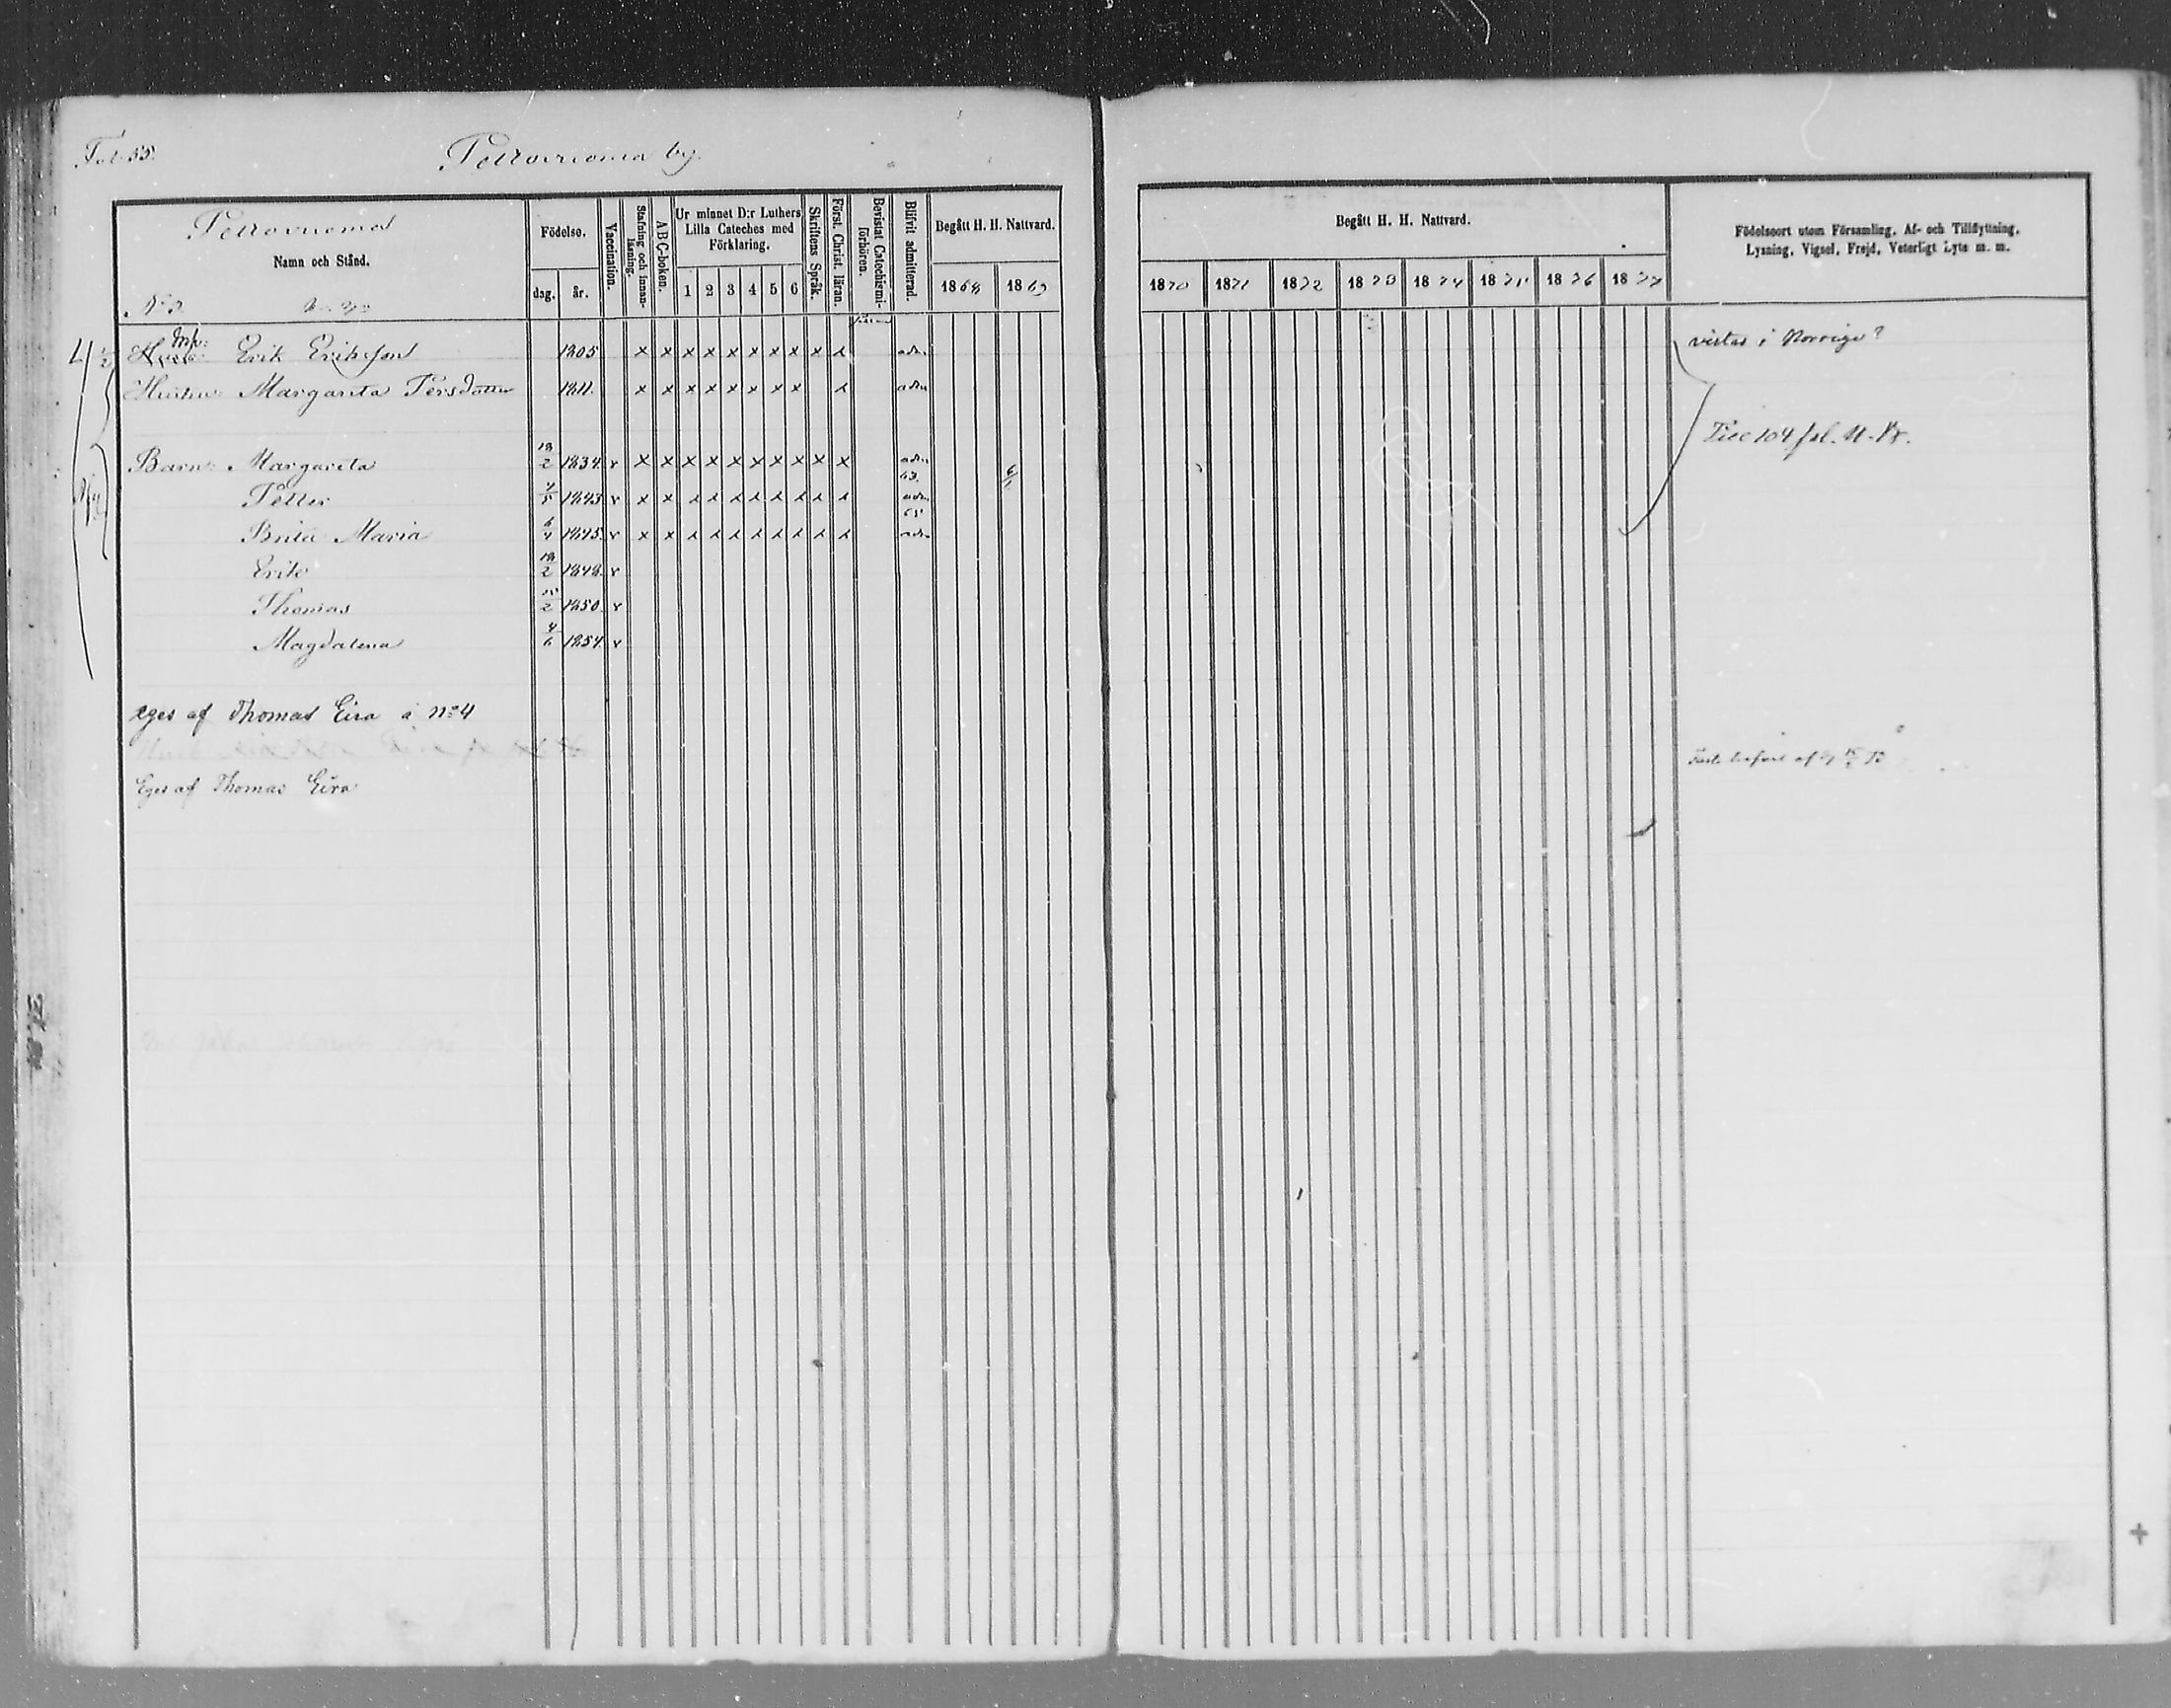 Fol. 55.
Pettovuoma by.
Pettovuoma
Namn och Stånd.
Födelse.
dag.
år.
Vaccination.
Stafning och innan-läsning.
ABC-boken.
Ur minnet D:r Luthers
Lilla Cateches med
Förklaring.
1 2 3 4 5 6
Skriftens Språk.
Först. Christ. läran.
Bevistat Catechismi-förhören.
Blifvit admitterad.
Begått H. H. Nattvard.
1868 1869
Begått H. H. Nattvard.
1870 1871 1872 1873 1874 1875 1876 1877
Födelseort utom Församling, Af- och Tillflyttning,
Lysning, Vigsel, Frejd, Veterligt Lyte m. m.
No 3.
Erik Eriksson 1805 x x x x x x x x x x adm. vistas i Norrige?
Hustru: Margareta Persdotter 1811. x x x x x x x x x adm
Till 104 fol.
Barn: Margareta 18/2 1834. v x x x x x x x x x x adm 6/1
63.
Petter 4/5 1843 v x x x x x x x x x x adm.
65
Brita Maria 6/4 1845 v x x x x x x x x x x adm
Erik 18/2 1848. v
Thomas 15/2 1850. v
Magdalena 4/6 1854. v
eges af Thomas Eira å No 4
Eges af Thomas Eira